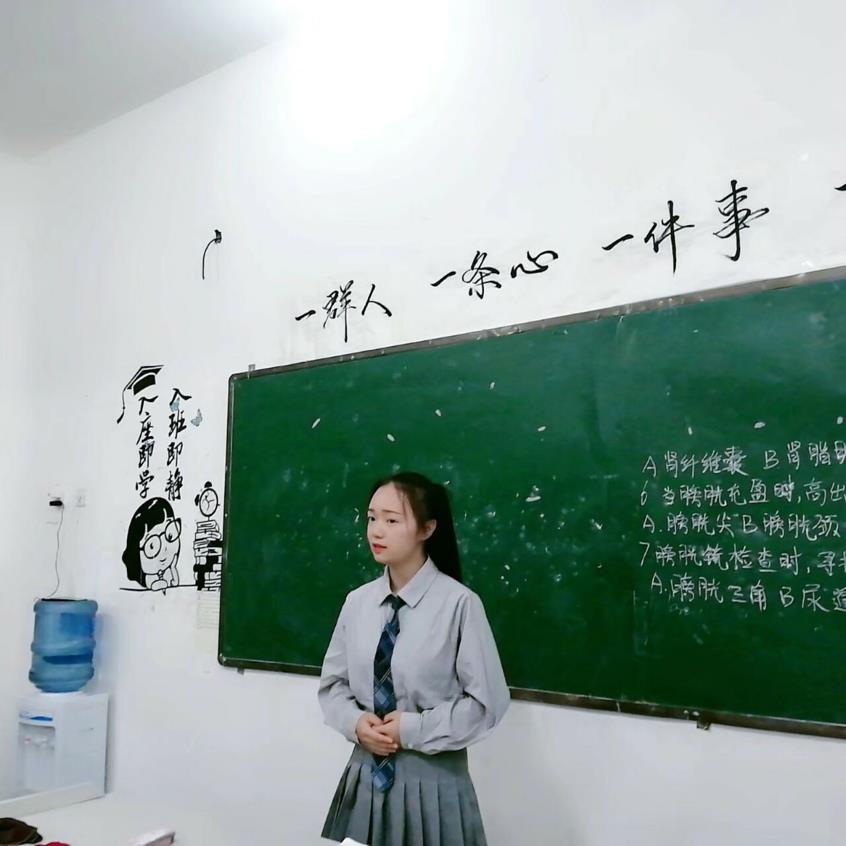 一群人 一条心 一件事 一
入班即静
入座即学
A 肾纤维囊 B 肾脂肪
6 当膀胱充盈时,高出
A.膀胱尖 B 膀胱颈
7 膀胱镜检查时,寻找
A.膀胱三角 B 尿道